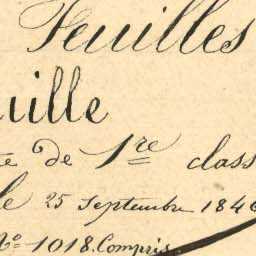 Feuilles
uille
te de 1re class
le 25 Septembre 1846
No 1018. Compris